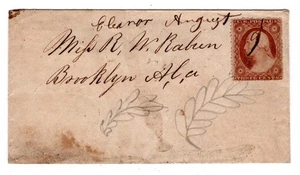 Eleanor August
Miss R. W. Raburn
Brooklyn Ala